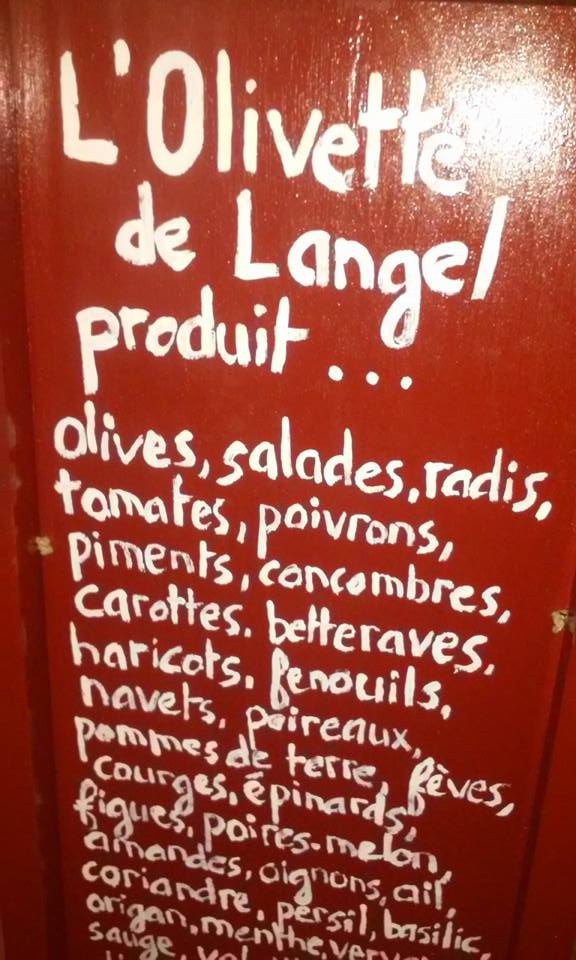 L'Olivette
de Langel
produit...
olives, salades, radis,
tomates, poivrons,
piments, concombres,
carottes. betteraves,
haricots, fenouils,
navets, poireaux,
pommes de terre, fèves,
courges, épinards,
figues, poires. melon,
amandes, oignons, ail,
coriandre, persil, basilic,
origan, menthe,
sauge,